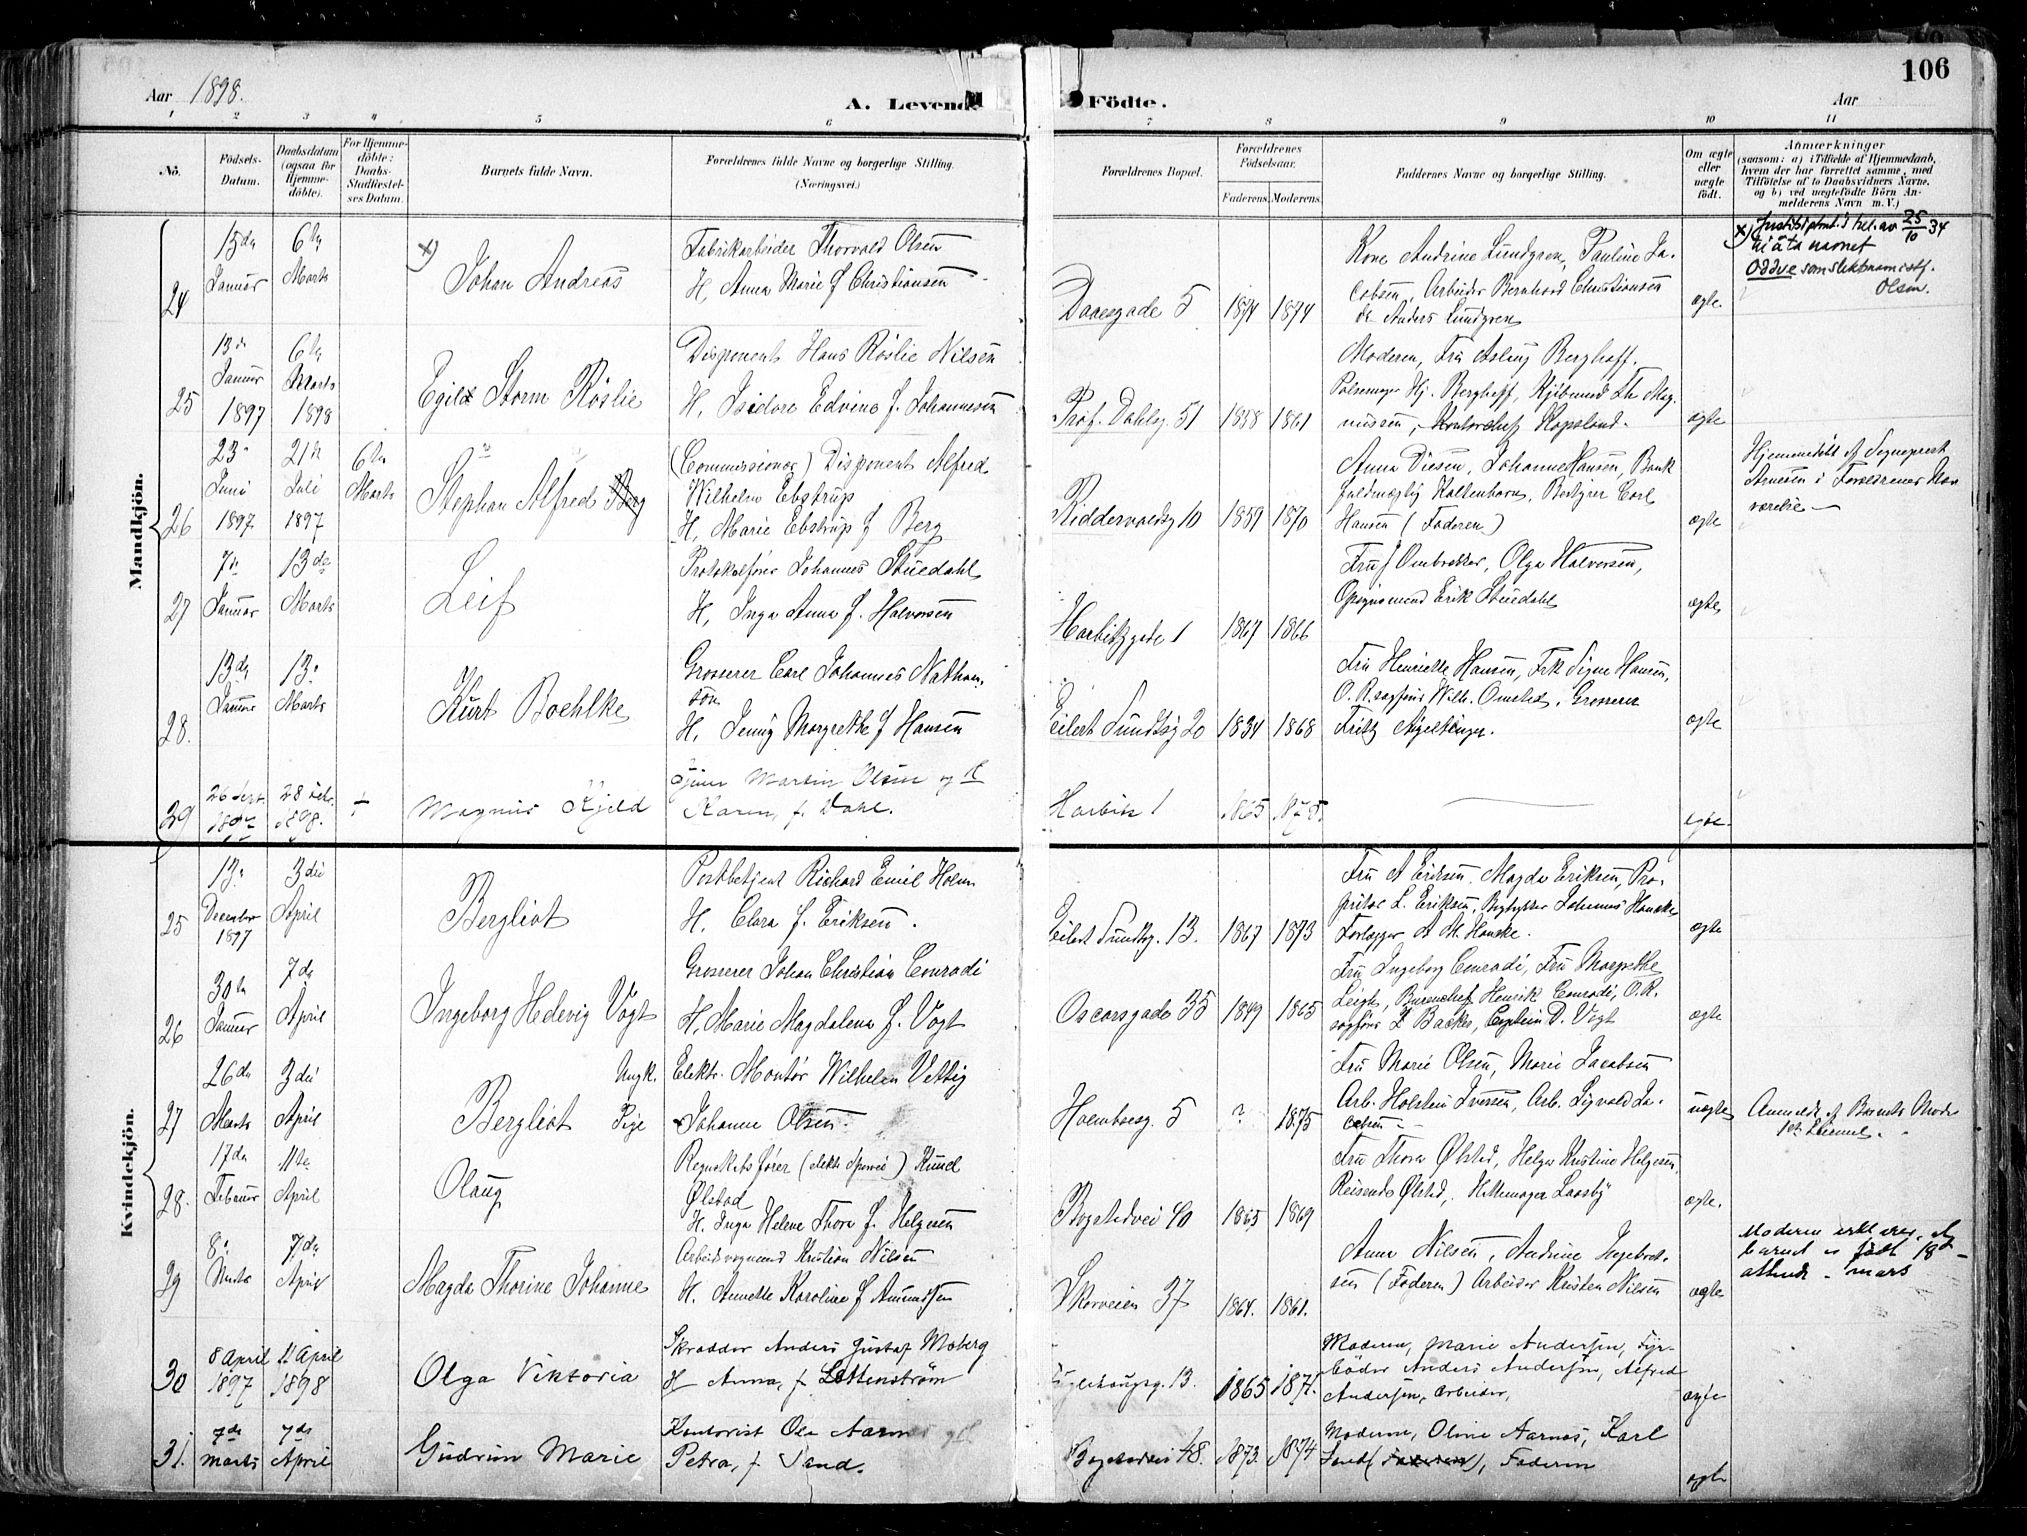 106
Aar 1898.
A. Levende
Födte.
Aar
1 2 3 4 5 6 7 8 9 10 11
No.
Födsels-Datum.
Daabsdatum (ogsaa for Hjemmedöbte).
For Hjemmedöbte: Daabs-Stadfæstelses Datum.
Barnets fulde Navn.
Forældrenes fulde Navne og borgerlige Stilling. (Næringsvei.)
Forældrenes Bopæl.
Forældrenes Födselsaar.
Faderens. Moderens.
Faddernes Navne og borgerlige Stilling.
Om ægte eller uægte født.
Anmærkninger
(saasom: a) i Tilfælde af Hjemmedaab, hvem der har forrettet samme, med Tilföielse af to Daabsvidners Navne, og b) ved uægtefödte Börn Anmelderens Navn m. V.)
Mandkjön.
24 15de Januar 6te Marts x) Johan Andreas
Fabrikarbeider Thorvald Olsen
H. Anna Marie f Christiansen
Daaesgade 5 1874 1874
Kone Andrine Lundgren, Pauline Jacobsen, Arbeider Bernhard Christiansen
Anders Lundgren
ægte.
x) 25/10 34
navnet
Oddve som slektsnavn istf.
Olsen.
25 13de Januar 1897 6te Marts 1898 Egil Storm Röslie
Disponent Hans Röslie Nilsen
H. Isidore Edvine f. Johannesen
Prof. Dahlsg. 51 1858 1861
Moderen, Fru Aslaug Berghoff.
Pölsemager Hj. Berghoff, Kjöbmand Th. Magnussen, Kopeland.
ægte
26 23 Juni 1897 21de Juli 1897 6te Marts Stephan Alfred Berg
(Commissionær) Disponent Alfred
Wilhelm Ebstrup
H. Marie Ebstrup f Berg
Riddervoldsg 10 1859 1870
Anna Diesen, Johanne Hansen, Bank
fuldmægtig Kaltenborn, Bestyrer Carl
Hansen (Faderen)
ægte
Hjemmedöbt af Sogneprest
Arnesen i Forældrenes Nærværelse
27 7de Januar 13de Marts Leif
Protokolförer Johannes Stuedahl
H. Inga Anna f. Halvorsen
Harbitzgade 1 1867 1866
Fru Ombrekker, Olga Halvorsen,
Opsynsmand Erik Stuedahl
ægte
28. 13de Januar 13. Marts Kurt Boehlke
Grosserer Carl Johannes Nathansön
H. Jenny Margrethe f Hansen
Eilert Sundtsg 20 1834 1868
Fru Henriette Hansen, Frk Signe Hansen,
O. R. sagförer Wilh. Omsted, Grosserer
Fritz
ægte
29 26 Sept. 28 1898. ÷ Magnus Kjeld
Martin Olsen og H
Karen, f. Dahl.
Harbitz 1 1865
ægte.
Kvindekjön.
25 13. December 1897 3die April Bergliot
Postbetjent Richard Emil Holm
H. Clara f. Eriksen.
Eilert Sundtsg. 13. 1867 1873
Fru A Eriksen, Magda Eriksen, Proprietær L. Eriksen, Bogtrykker Johannes Hanche
Forlægger A M. Hanche.
ægte
26 30te Januar 7de April Ingeborg Hedevig Vogt
Grosserer Johan Christian Conradi
H. Marie Magdalena f. Vogt
Oscarsgade 35 1849 1865
Fru Ingeborg Conradi, Fru Margrethe
Bureauchef Henrik Conradi, O.R.
sagförer L Backer, Captein D. Vogt
ægte
27 26de Marts 3die April Bergliot
Ungk. Elektr. Montör Wilhelm Vettig
Pige Johanne Olsen
Holmboesg. 5 ? 1875
Fru Marie Olsen, Marie Jacobsen
Arb. Holsten Iversen, Arb. Sigvald Jacobsen
uægte
Anmeldt af Barnets Moder
28. 17de Februar 11te April Olaug
Regnskabsförer Knud
Ölstad
H. Inga Helene Thora f. Helgesen
Bogstadvei 40 1865 1869
Fru Thora Ölsted, Helga Kristine Helgesen,
Reisende Ölsted, Hattemager Laasby
ægte.
29 8. Marts 7de April Magda Thorine Johanne
Arbeidsvognmand Kristian Nilsen
H. Annette Karoline f Amundsen
Skovveien 37 1864. 1861.
Anna Nilsen, Andrine Ingebretsen (Faderen) Arbeider Kristen Nilsen
ægte
Moderen erklærer, at
barnet er födt 18de
attende - mars
30 8 April 1897 11 April 1898 Olga Viktoria
Skrædder Anders Gustaf Moberg
H Anna, f. Lettenström
13. 1865 1871.
Moderen, Marie Andersen, Fyrböder Anders Andersen, Alfred
Andersen, arbeider,
ægte
31. 7de marts 7de April Gudrun Marie
Kontorist Ole Aarnes og H
Petra, f. Sand.
Bogstadvei 48. 1873. 1874
Moderen, Oline Aarnes, Karl
Sand (Faderen), Faderen
ægte